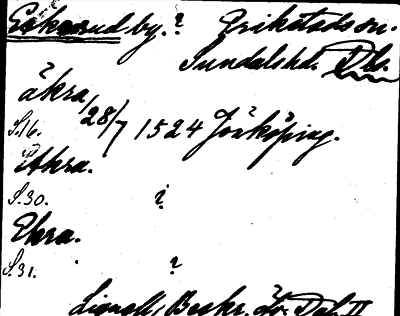 Ekerud by. ? Erikstads sn.
Sundalshd. Dls.
äkra 28/7 1524 Jönköping.
S.16.
Ekra.
S.30. ?
Ekra.
S.31. ?
Lignell, Beskr. öfv. Dal. II